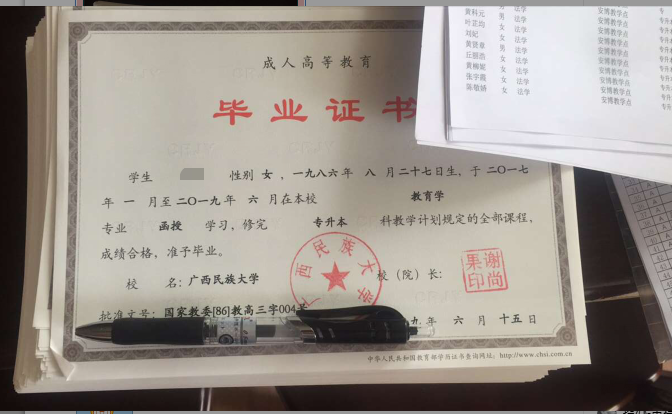 成人高等教育
毕业证书
学生 性别 女，一九八六年 八 月二十七日生，于二〇一七
年 一 月至二〇一九年 六 月在本校 教育学
专业 函授 学习，修完 专升本 科教学计划规定的全部课程，
成绩合格，准予毕业。
校 名：广西民族大学
校（院）长：
谢尚果印
广西民族大学
批准文号：国家教委[86]教高三字004号
九年 六 月 十五 日
中华人民共和国教育部学历证书查询网址：http://www.chsi.com.cn
黄科元 男 法学 安博教学点
叶芷均 女 法学 安博教学点
刘妃 女 法学 安博教学点
黄贤章 男 法学 安博教学点
丘丽浩 女 法学 安博教学点
黄楠妮 女 法学 安博教学点
张宇薇 女 法学 安博教学点
陈敏娇 女 法学 安博教学点